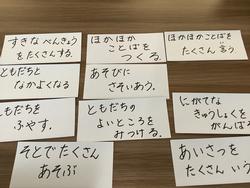 すきな べんきょう
をたくさんする.
ほかほか
ことばを
つくる.
ほかほかことばを
たくさん 言う
ともだちと
なかよくなる
あそびに
さそいあう.
ともだちを
ふやす.
ともだちの
よいところを
みつける.
にがてな
きゅうしょくを
がんば
そとでたくさん
あそぶ
あいさつを
たくさん いう